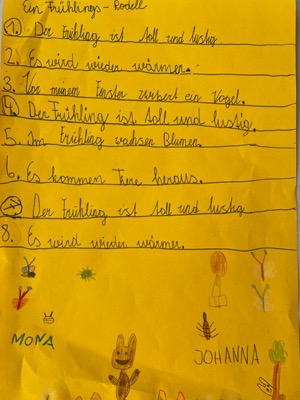 Ein Frühlings-Rodell
1. Der Frühling ist toll und lustig.
2. Es wird wieder wärmer.
3. Vor meinem Fenster zwitsert ein Vogel.
4. Der Frühling ist toll und lustig.
5. Im Frühling wachsen Blumen.
6. Es kommen Tiere heraus.
7. Der Frühling ist toll und lustig
8. Es wird wieder wärmer.
MONA
JOHANNA